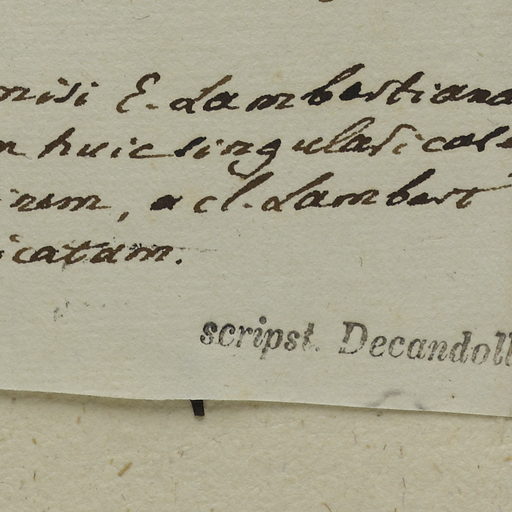 misi E. Lambertiana
huic singulari cal
a cl. Lambert
icatam.
scripst. Decandoll